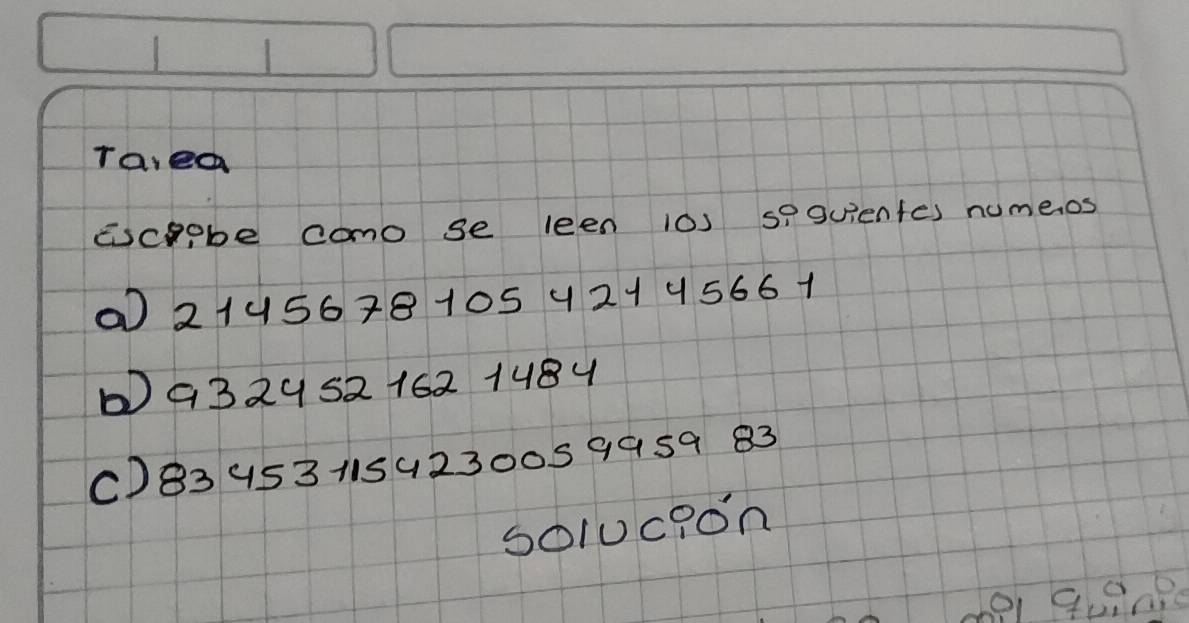 Tarea
Escribe como se leen los siguientes numeros
a) 2145678105 42145661
b) 932452 162 1484
c) 834531154230059959 83
solución
mil quinie